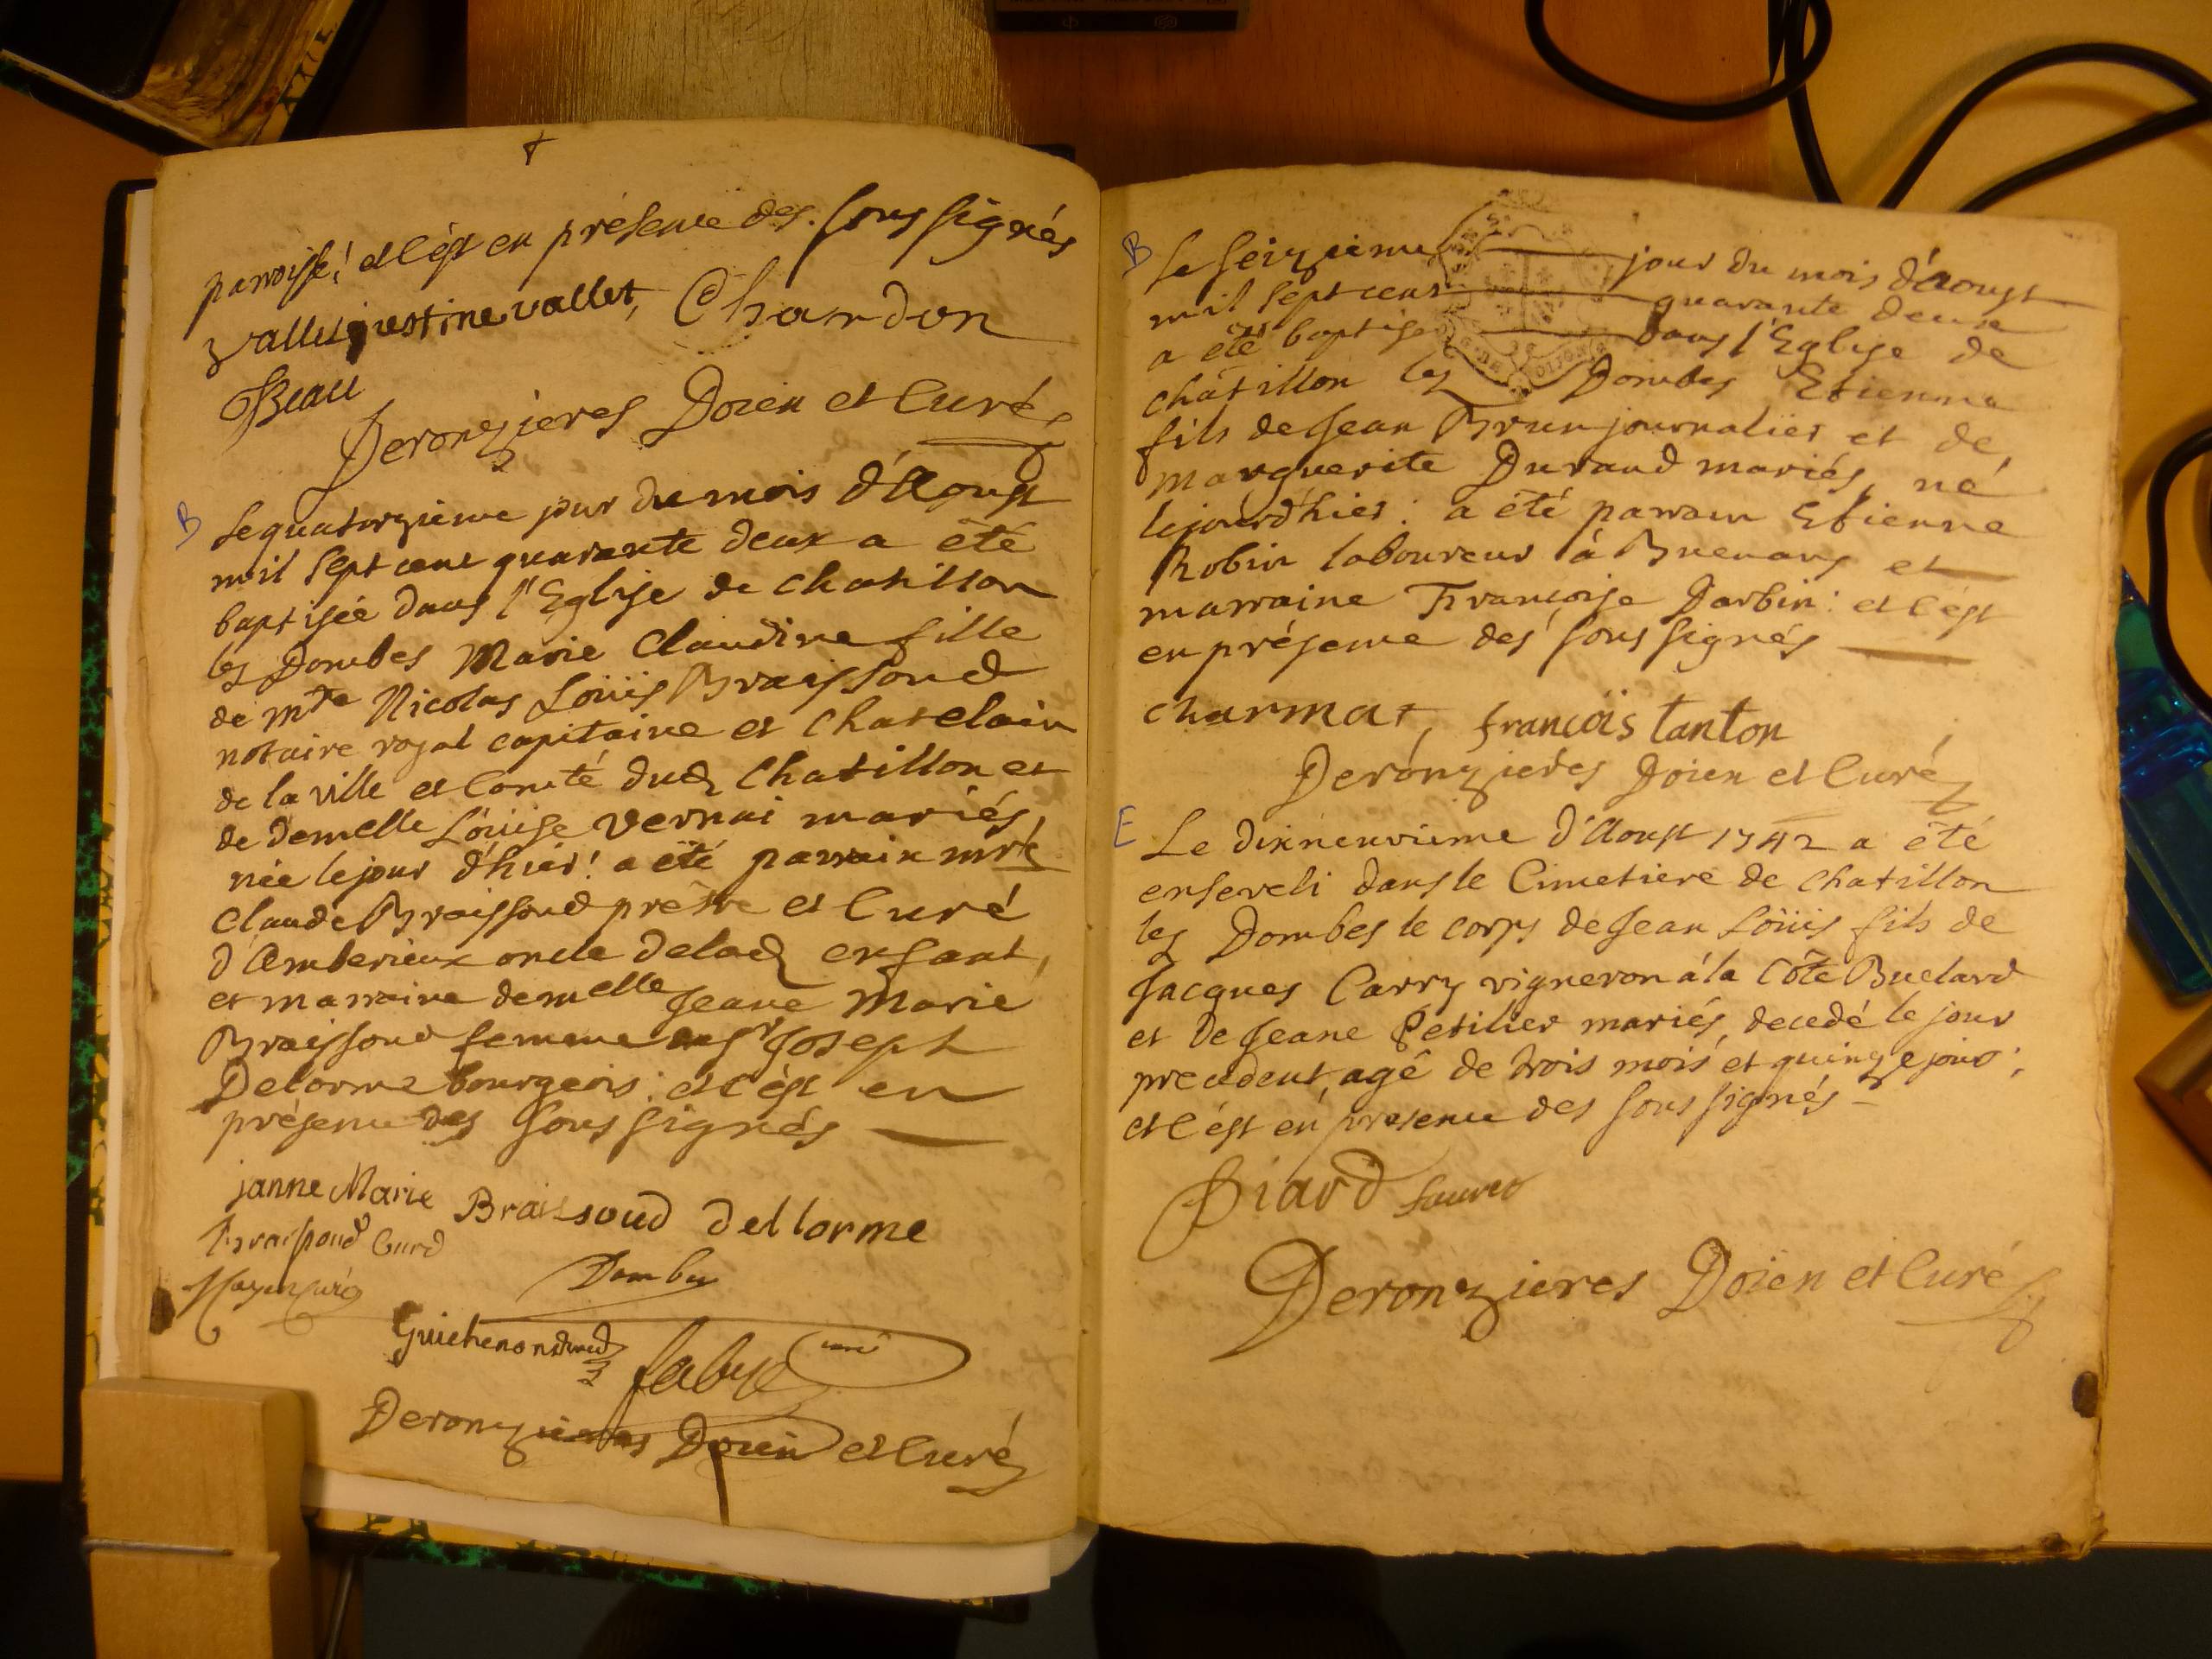 parroisse! et c'est en présence des soussignés
vallet justine vallet, Chardon
Beau
Deronzieres Doien et Curé
B
Le quatorzieme jour du mois d'Aoust
mil sept cent quarante deux a été
baptisée dans l'Eglise de chatillon
les Dombes Marie Claudine fille
de mtre Nicolas Loüis Braissoud
notaire royal capitaine et chatelain
de la ville et Comté dud chatillon et
de demelle Loüise vernai mariés,
née le jour d'hier! a été parrain mre
Claude Braissoud prêtre et Curé
d'Amberieux oncle de lad enfant,
et marraine demelle Jeane Marie
Braissoud femme du sr Joseph
Delorme bourgeois: et c'est en
présence des soussignés
janne Marie Braissoud dellorme
Braissoud Curé
Dombey
Guichenon
Deronzieres Doien et Curé
B
Le seizieme jour du mois d'Aoust
mil sept cens quarante deux
a été baptisé dans l'Eglise de
chatillon les Dombes Etienne
fils de Jean Brun journalier et de
marguerite Durand mariés, né
le jour d'hier: a été parrain Etienne
Robin laboureur à Buenans et
marraine Françoise Darbin: et c'est
en présence des soussignés
charmat, françois tanton
Deronzieres Doien et Curé
E
Le dixneuvieme d'Aoust 1742 a été
enseveli dans le Cimetiere de chatillon
les Dombes le corps de Jean Loüis fils de
Jacques Carry vigneron à la Côte Buelard
et de Jeane Petilier mariés, decedé le jour
precedent, agé de trois mois et quinze jours;
et c'est en presence des soussignés
Biard
Deronzieres Doïen et Curé